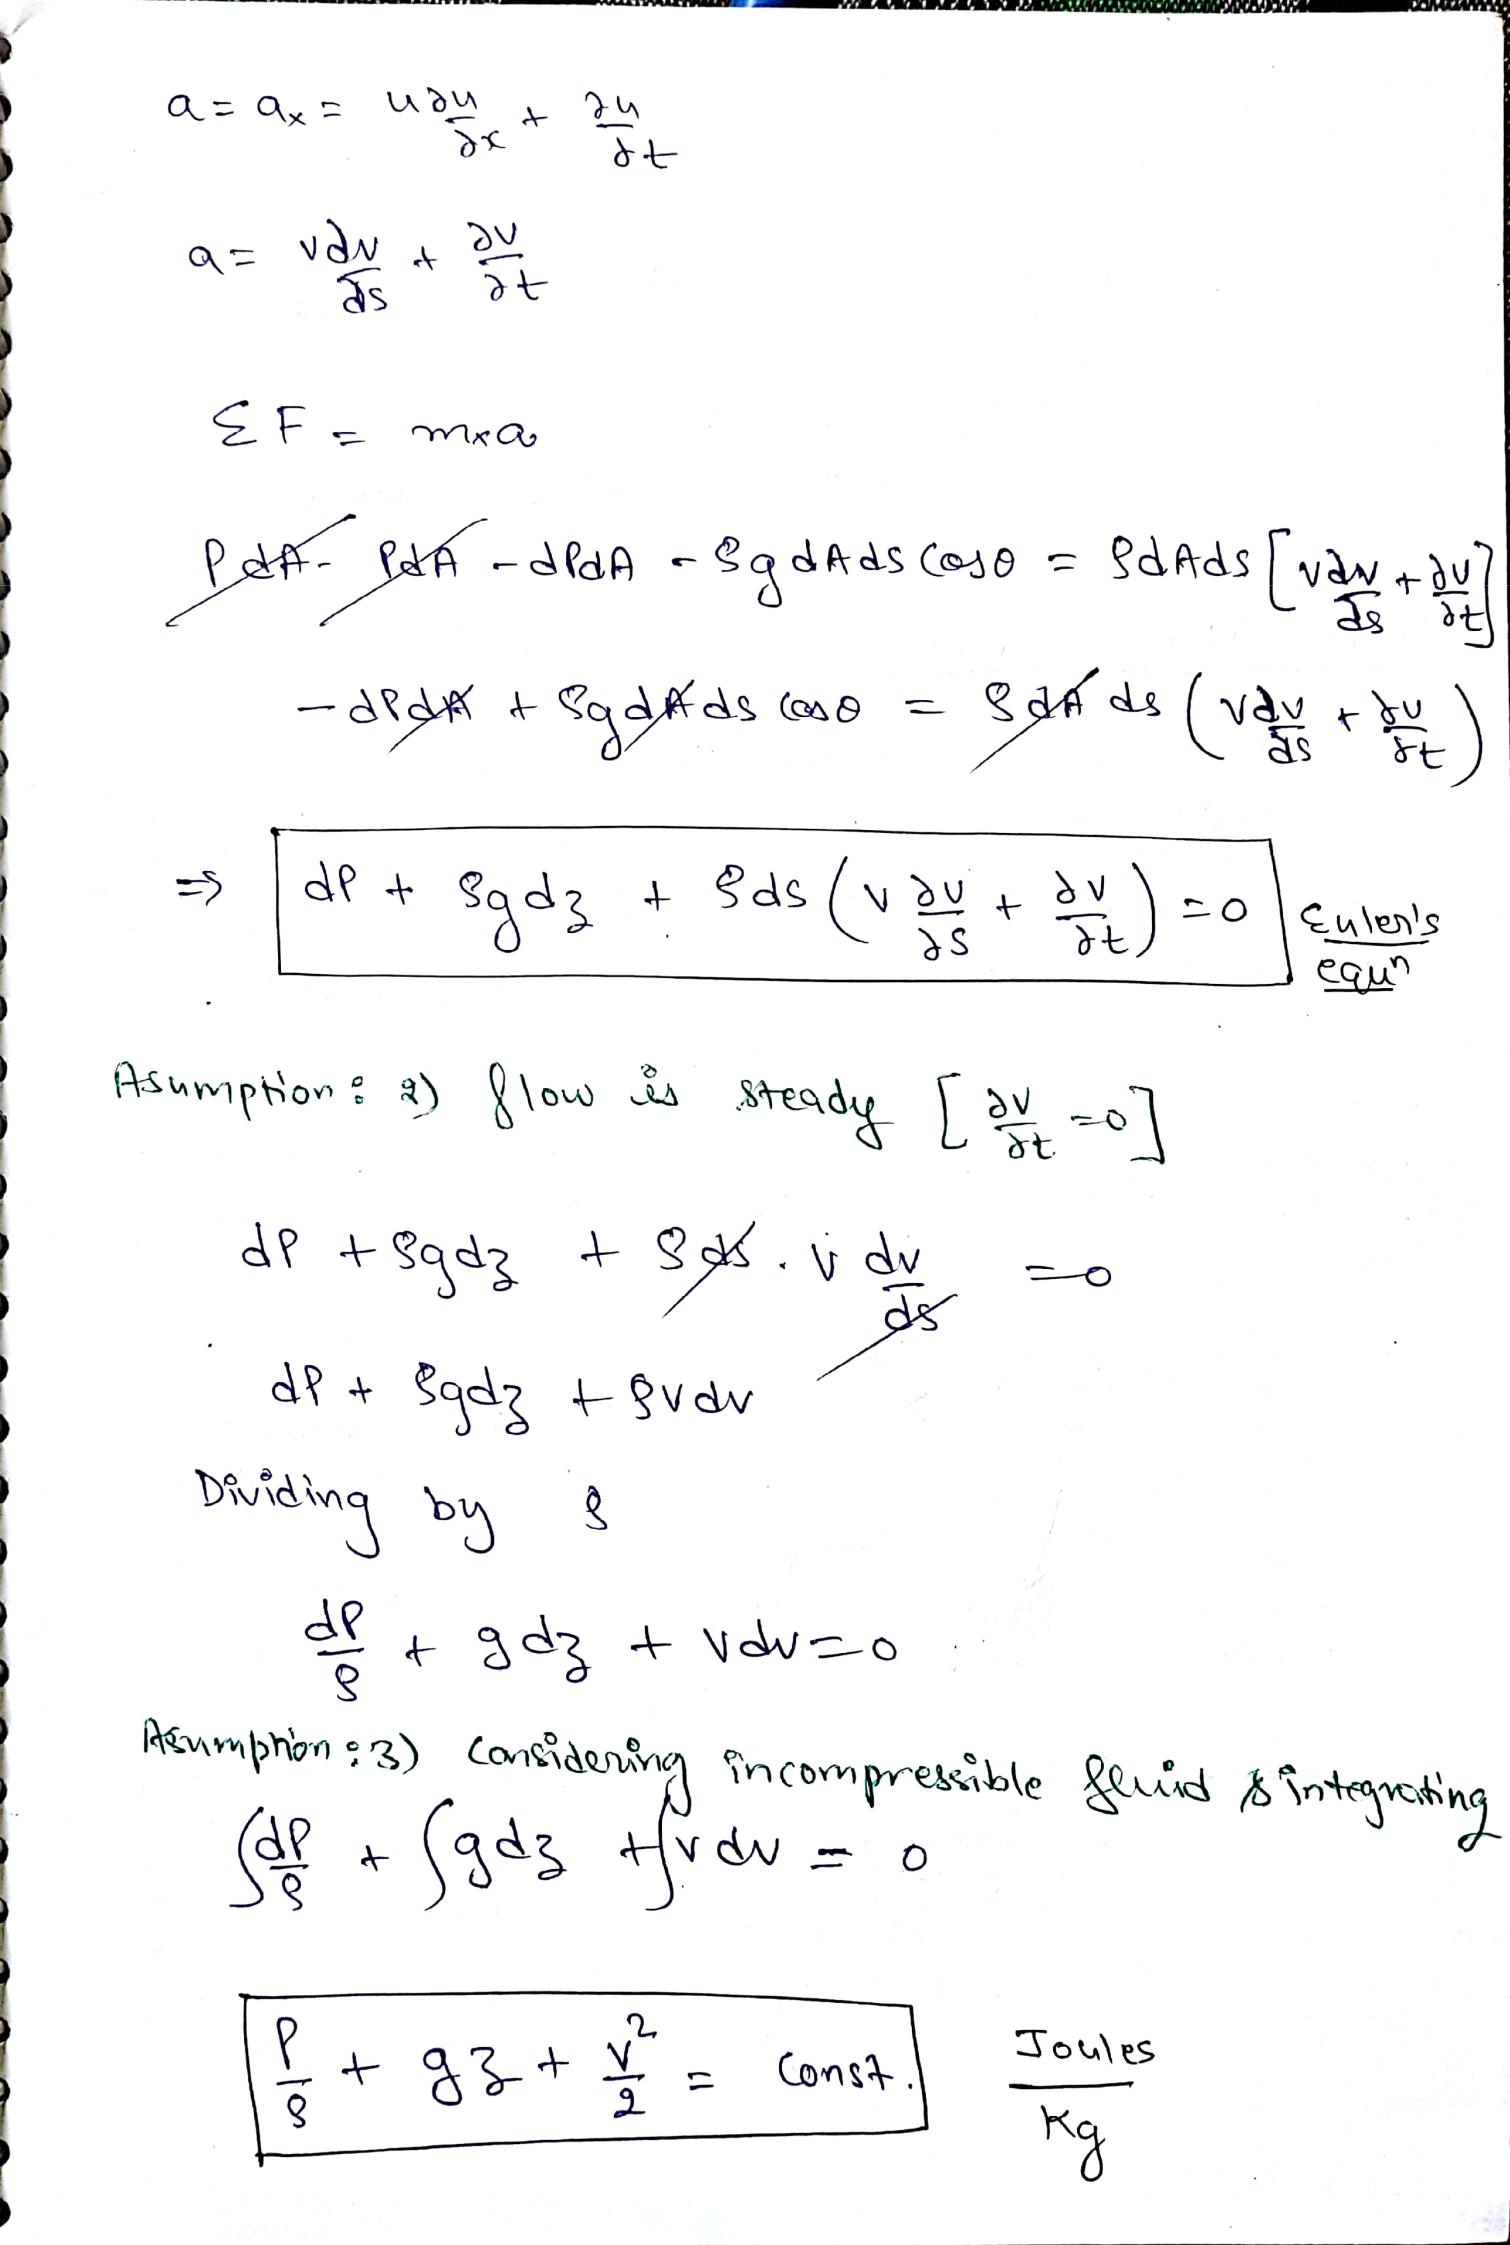 a = aₓ = u ∂u/∂x + ∂u/∂t
a = v ∂v/∂s + ∂v/∂t
ΣF = m×a
PdA - PdA - dPdA - ρg dAds Cosθ = ρdAds [v ∂v/∂s + ∂v/∂t]
- dPdA + ρg dAds Cosθ = ρdA ds (v ∂v/∂s + ∂v/∂t)
⇒ dP + ρgdz + ρds (v ∂v/∂s + ∂v/∂t) = 0 Euler's equⁿ
Asumption: 2) flow is steady [∂v/∂t = 0]
dP + ρgdz + ρds . v dv/ds = 0
dP + ρgdz + ρvdv
Dividing by ρ
dP/ρ + gdz + vdv = 0
Asumption: 3) Considering incompressible fluid & integrating
∫dP/ρ + ∫gdz + ∫vdv = 0
P/ρ + gz + v²/2 = Const. Joules/Kg